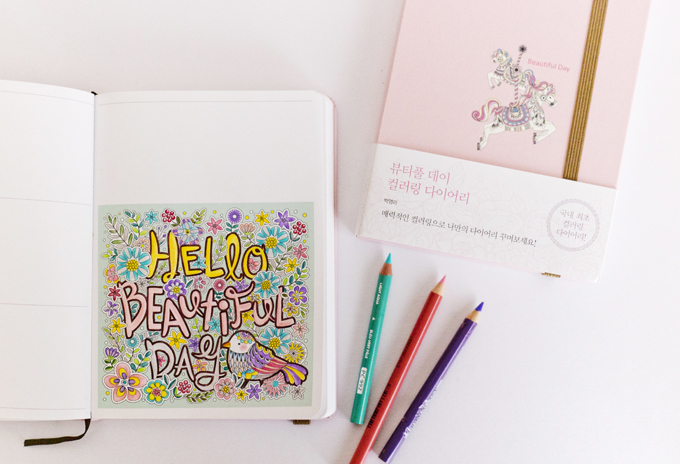 HELLO
BEAUTIFUL
DAY
Beautiful Day
뷰티풀 데이
컬러링 다이어리
매력적인 컬러링으로 나만의 다이어리 꾸며보세요!
국내 최초
컬러링
다이어리!